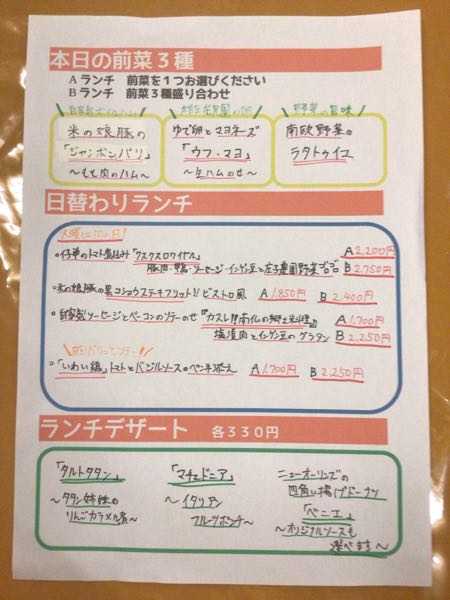 本日の前菜３種
Ａランチ　前菜を１つお選びください
Ｂランチ　前菜３種盛り合わせ
野菜の旨味
米の娘豚の
「ジャンボンパリ」
〜もも肉のハム〜
ゆで卵とマヨネーズ
「ウフ・マヨ」
〜生ハムのせ〜
南欧野菜の
ラタトゥイユ
日替わりランチ
火曜は肉の日!
・仔羊のトマト煮込み「クスクスロワイヤル」 A 2,200円
豚肉・鴨・ソーセージ・インゲン豆と庄子農園野菜ゴロゴロ B 2,750円
・米の娘豚の黒コショウステキフリット!! ビストロ風 A 1,850円 B 2,400円
・自家製ソーセージとベーコンのソテーのせ 『カスレ』!!南仏の郷土料理 A 1,700円
塩漬肉とインゲン豆のグラタン B 2,250円
・「いわい鶏」トマトとバジルソースのペンネ添え A 1,700円 B 2,250円
ランチデザート　各３３０円
「タルトタタン」
〜タタン姉妹の
りんごカラメル煮〜
「マチェドニア」
〜イタリアン
フルーツポンチ〜
ニューオーリンズの
四角い揚げドーナツ
「ベニエ」
〜オリジナルソースも
選べます〜